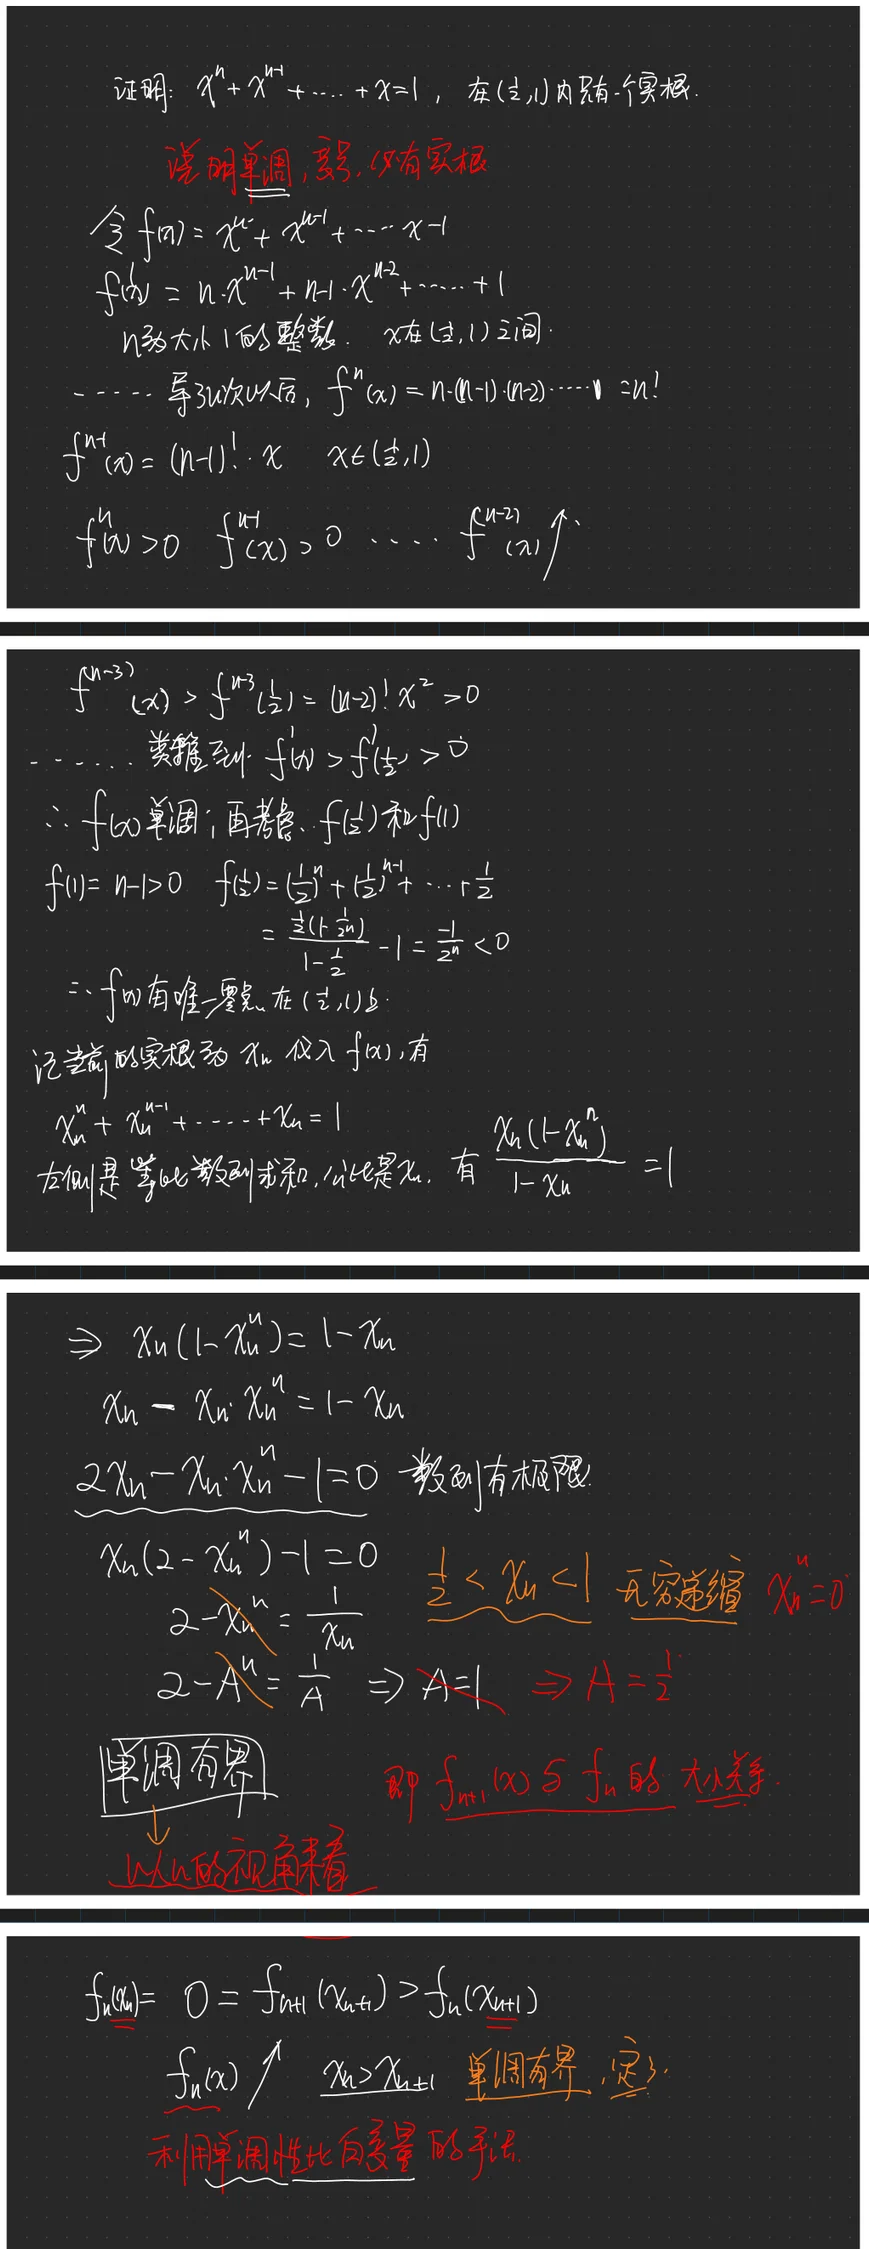 证明: xⁿ+xⁿ⁻¹+....+x=1, 在(½,1)内只有一个实根.
说明单调,变号,必有实根
令 f(x)=xⁿ+xⁿ⁻¹+....x-1
f'(x)=n·xⁿ⁻¹+n-1·xⁿ⁻²+.....+1
n为大于1的整数. x在(½,1)之间.
..... 导n次以后, fⁿ(x)=n·(n-1)·(n-2).....1=n!
fⁿ⁻¹(x)=(n-1)!·x x∈(½,1)
fⁿ(x)>0 fⁿ⁻¹(x)>0 .... f⁽ⁿ⁻²⁾(x)↗
f⁽ⁿ⁻³⁾(x)>fⁿ⁻³(½)=(n-2)!x²>0
...... 类推到 f'(x)>f'(½)>0
∴f(x)单调;再考虑 f(½)和f(1)
f(1)=n-1>0 f(½)=(½)ⁿ+(½)ⁿ⁻¹+...+½
=½(1-1/2ⁿ)/(1-½)-1=-1/2ⁿ<0
∴f(x)有唯一零点在(½,1)上.
记当前的实根为xₙ代入f(x),有
xₙⁿ+xₙⁿ⁻¹+.....+xₙ=1
左侧是等比数列求和,公比是xₙ. 有 xₙ(1-xₙⁿ)/(1-xₙ)=1
⇒ xₙ(1-xₙⁿ)=1-xₙ
xₙ-xₙ·xₙⁿ=1-xₙ
2xₙ-xₙ·xₙⁿ-1=0 数列有极限.
xₙ(2-xₙⁿ)-1=0
½<xₙ<1 无穷递缩 xₙⁿ=0
2-xₙⁿ=1/xₙ
2-Aⁿ=1/A ⇒ A=1 ⇒ A=½
单调有界
即 fₙ₊₁(x)与fₙ的大小关系.
↓
以n的视角来看
fₙ(xₙ)=0=fₙ₊₁(xₙ₊₁)>fₙ(xₙ₊₁)
fₙ(x)↗ xₙ>xₙ₊₁ 单调有界,定了.
利用单调性比自变量的手法.